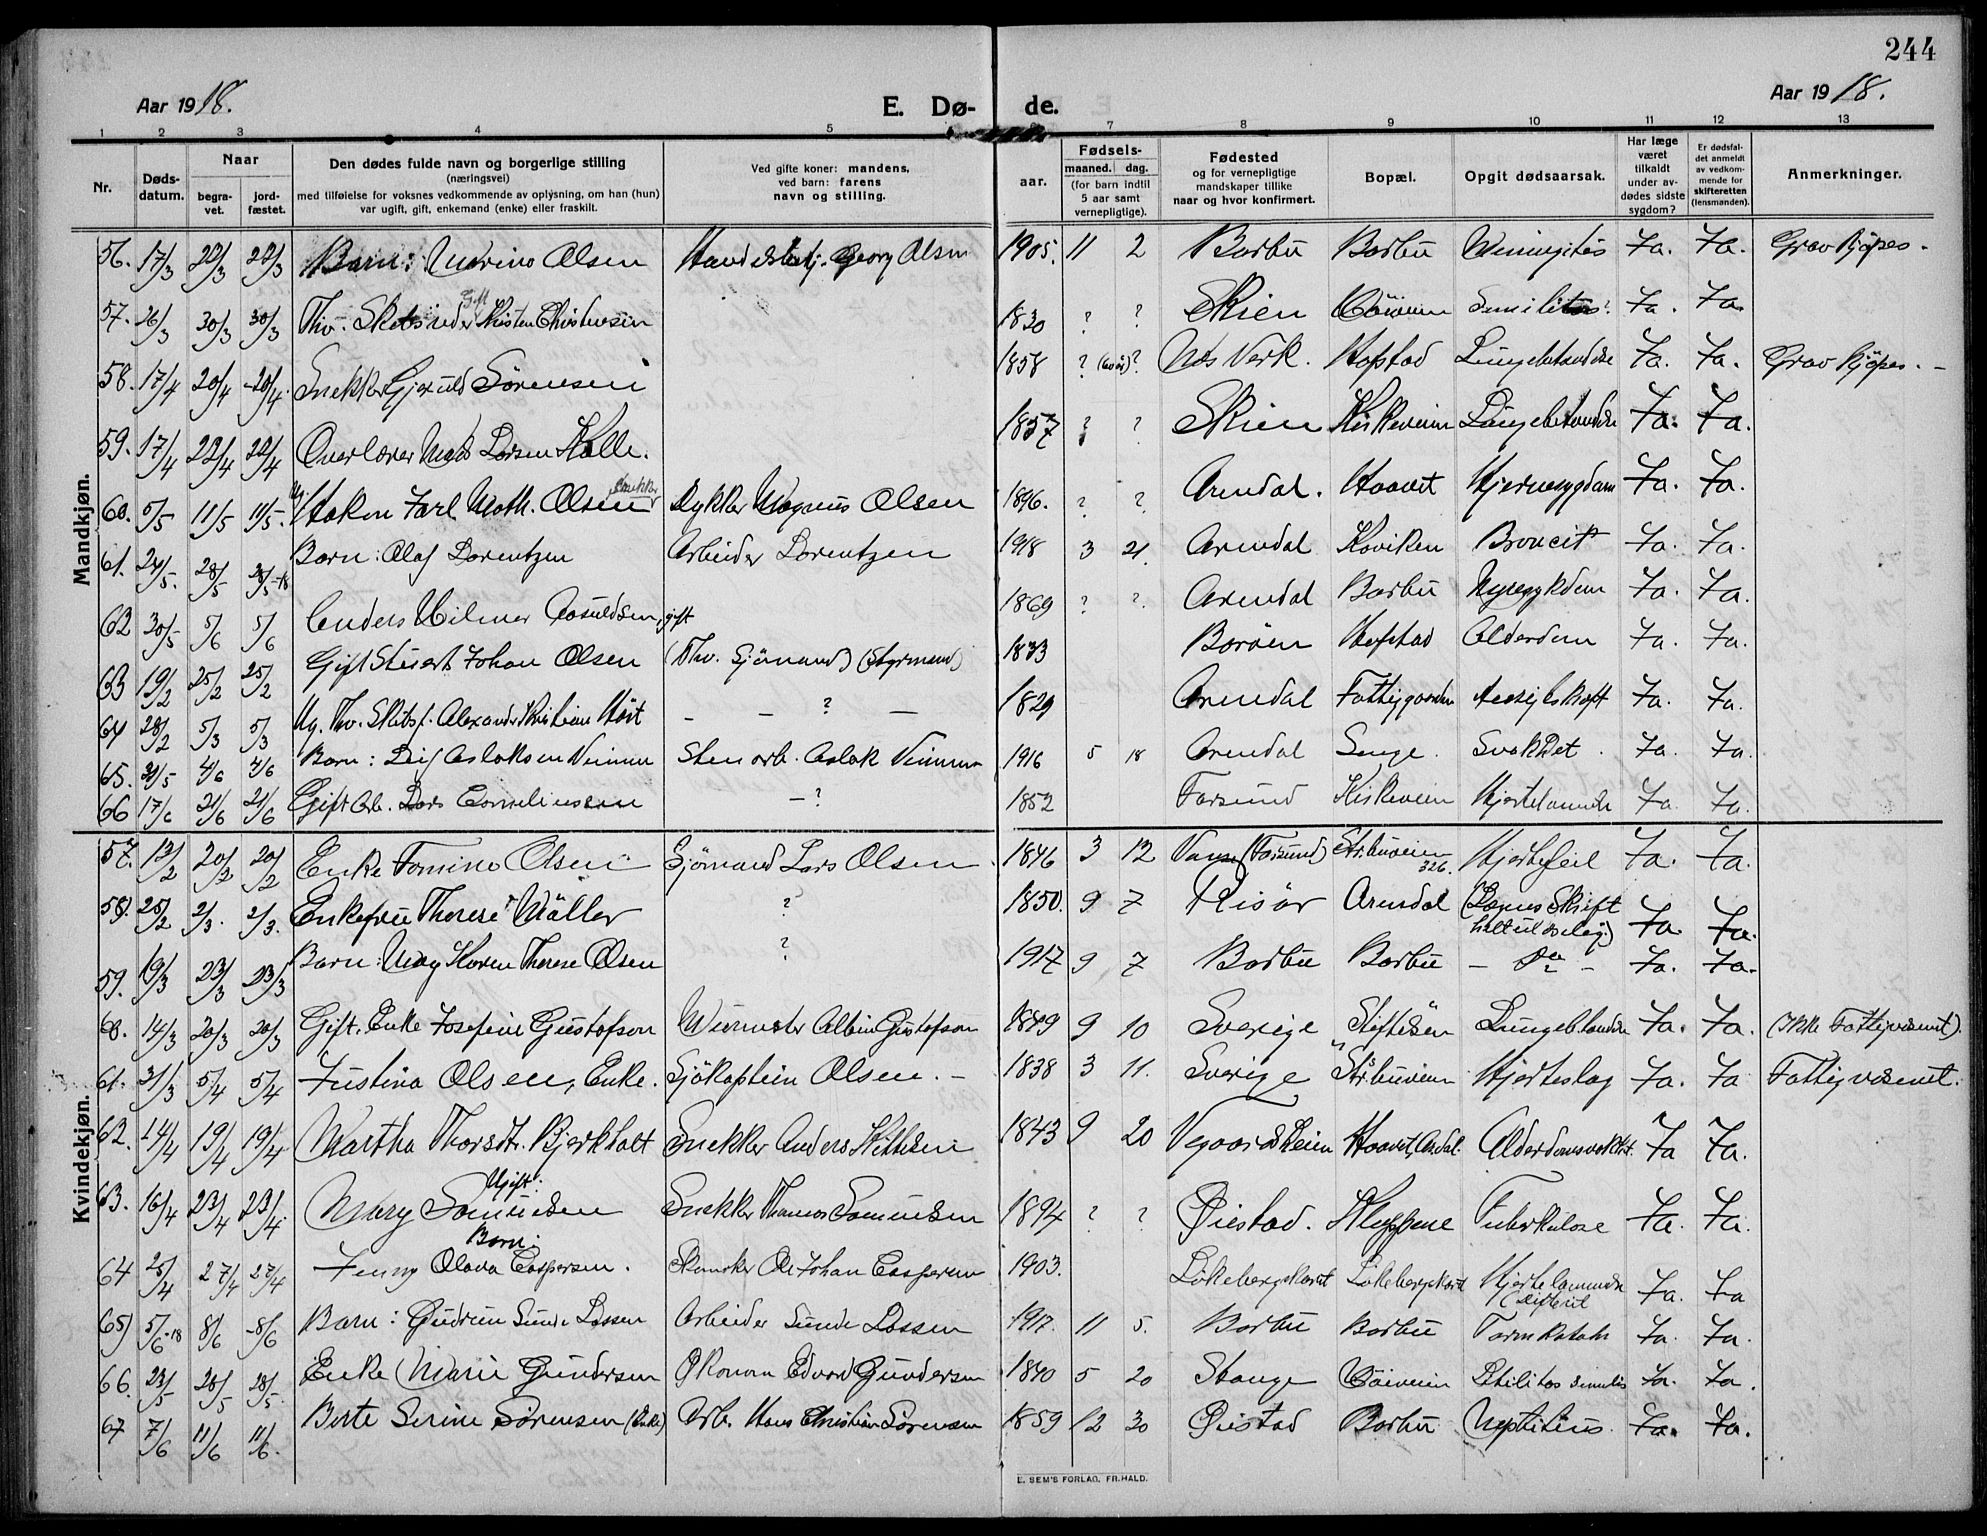 244
Aar 1918.
E. Dø- de.
Aar 1918.
1 2 3 4 5 7 8 9 10 11 12 13
Nr.
Døds-
datum.
Naar
begra-
vet.
jord-
fæstet.
Den dødes fulde navn og borgerlige stilling
(næringsvei)
med tilføielse for voksnes vedkommende av oplysning, om han (hun)
var ugift, gift, enkemand (enke) eller fraskilt.
Ved gifte koner: mandens,
ved barn: farens
navn og stilling.
aar.
Fødsels-
maaned. dag.
(for barn indtil
5 aar samt
vernepligtige).
Fødested
og for vernepligtige
mandskaper tillike
naar og hvor konfirmert.
Bopæl.
Opgit dødsaarsak.
Har læge
været
tilkaldt
under av-
dødes sidste
sygdom?
Er dødsfal-
det anmeldt
av vedkom-
mende for
skifteretten
(lensmanden).
Anmerkninger.
Mandkjøn.
56. 17/3 22/3 22/3 Barn: Marino Olsen Georg Olsen 1905. 11 2 Barbu Barbu Ja. Ja. Grav kjøpes.
57. 26/3 30/3 30/3 Gift Kristen Christensen 1830 ? ? Skien Ja. Ja
58. 17/4 20/4 20/4 Snekker Gjeruld Sörensen 1858 ? ? Næs Verk. Hofstad Lungebetændelse Ja. Ja. Grav kjøpes. –
59. 17/4 22/4 22/4 Overlærer Larsen Kalle. 1857 ? ? Skien Kirkeveien Lungebetændelse Ja. Ja.
60. 5/5 11/5 11/5 Ug. Haken Jarl Math. Olsen snekker Dykker Magnus Olsen 1896. ? ? Arendal. Haavet Hjernesygdom Ja. Ja.
61. 24/5. 28/5 28/5-18 Barn: Olaf Lorentzen Arbeider Lorentzen 1918 3 21. Arendal Kaviken Ja. Ja.
62 30/5 5/6 5/6 Anders Hilmer Aasuldsen, gift 1869 ? ? Arendal Barbu Nyresykdom Ja. Ja.
63 19/2 25/2 25/2 Gift Johan Olsen (Thv. Sjömand) (Styrmand) 1833 Boröen Hofstad Alderdom Ja. Ja.
64 28/2 5/3 5/3 Ug. Thv. Skibsf. Alexander Kristian Höst – – ? – 1829 Arendal Fattiggaarden Ja. Ja.
65. 30/5 4/6 4/6 Barn: Leif Aslaksen Stenarb. Aslak 1916 5 18 Arendal Songe. Svakhet. Ja. Ja
66 17/6 21/6 21/6 Gift Arb. Lars Corneliussen – ? 1852 Farsund Kirkeveien Ja. Ja.
Kvindekjøn.
57. 12/2 20/2 20/2 Enke Tomine Olsen Sjömand Lars Olsen 1846 3 12 Vanse (Farsund) Strbuveien 326. Hjertefeil Ja. Ja.
58. 25/2 2/3. 2/3. Enkefru Therese Möller ? 1850. 9 7 Risör Arendal Ja. Ja.
59. 19/3 23/3 23/3 Barn: May Karen Therese Olsen ? 1917 9 7 Barbu Barbu – Do – Ja. Ja.
60. 14/3 20/3 20/3 Gift. Enke Josefine Gustafson Albin Gustafson 1849 9 10 Sverige Ja. Ja. (Ikke Fattigvæsenet).
61. 31/3 5/4 5/4 Justina Olsen, Enke. Sjökaptein Olsen. – 1838 3 11. Sverige Strbuveien Hjerteslag Ja. Ja Fattigvæsenet.
62. 14/4 19/4 19/4 Martha Thorsdtr. Bjerkholt Snekker Anders 1843 9 20 Vegaardsheien Haavet, Ardal. Alderdomsvakhet. Ja Ja.
63. 16/4 23/4 23/4 Ugift: Mary Samuelsen Snekker Thomas Samuelsen 1894 ? ? Øiestad. Kleppene Tuberkulose Ja. Ja.
64 25/4 27/4 27/4 Barn: Jenny Olava Caspersen. Ole Johan Caspersen 1903. Ja. Ja
65) 5/6-18 8/6 8/6 Barn: Gudrun Sunde Larsen Arbeider Sunde Larsen 1917. 11 5. Barbu Barbu Tarmkatarh Ja. Ja.
66. 23/5 28/5 28/5. Enke Marie Gundersen Økonom Edvard Gundersen 1840 5 20 Stange Ja. Ja.
67 7/6 11/6 11/6. Berte Serine Sørensen (Enke) Arb. Hans Christian Sørensen 1859 12 30 Øiestad Barbu Ja. Ja.
E. SEM'S FORLAG, FR.HALD.